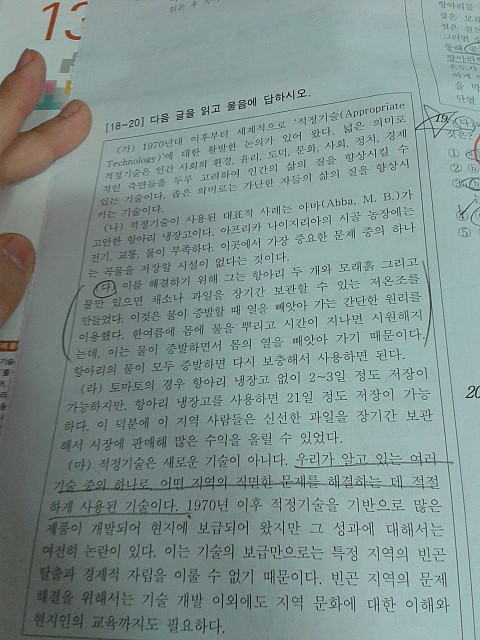 13
[18~20] 다음 글을 읽고 물음에 답하시오.
(가) 1970년대 이후부터 세계적으로 '적정기술(Appropriate
Technology)'에 대한 활발한 논의가 있어 왔다. 넓은 의미로
적정기술은 인간 사회의 환경, 윤리, 도덕, 문화, 사회, 정치, 경제
적인 측면들을 두루 고려하여 인간의 삶의 질을 향상시킬 수
있는 기술이다. 좁은 의미로는 가난한 자들의 삶의 질을 향상시
키는 기술이다.
(나) 적정기술이 사용된 대표적 사례는 아바(Abba, M. B.)가
고안한 항아리 냉장고이다. 아프리카 나이지리아의 시골 농장에는
전기, 교통, 물이 부족하다. 이곳에서 가장 중요한 문제 중의 하나
는 곡물을 저장할 시설이 없다는 것이다.
(다) 이를 해결하기 위해 그는 항아리 두 개와 모래흙 그리고
물만 있으면 채소나 과일을 장기간 보관할 수 있는 저온조를
만들었다. 이것은 물이 증발할 때 열을 빼앗아 가는 간단한 원리를
이용했다. 한여름에 몸에 물을 뿌리고 시간이 지나면 시원해지
는데, 이는 물이 증발하면서 몸의 열을 빼앗아 가기 때문이다.
항아리의 물이 모두 증발하면 다시 보충해서 사용하면 된다.
(라) 토마토의 경우 항아리 냉장고 없이 2~3일 정도 저장이
가능하지만, 항아리 냉장고를 사용하면 21일 정도 저장이 가능
하다. 이 덕분에 이 지역 사람들은 신선한 과일을 장기간 보관
해서 시장에 판매해 많은 수익을 올릴 수 있었다.
(마) 적정기술은 새로운 기술이 아니다. 우리가 알고 있는 여러
기술 중의 하나로, 어떤 지역의 직면한 문제를 해결하는 데 적절
하게 사용된 기술이다. 1970년 이후 적정기술을 기반으로 많은
제품이 개발되어 현지에 보급되어 왔지만 그 성과에 대해서는
여전히 논란이 있다. 이는 기술의 보급만으로는 특정 지역의 빈곤
탈출과 경제적 자립을 이룰 수 없기 때문이다. 빈곤 지역의 문제
해결을 위해서는 기술 개발 이외에도 지역 문화에 대한 이해와
현지인의 교육까지도 필요하다.
항아리를
그러면
19.
①
②
③
⑤
20